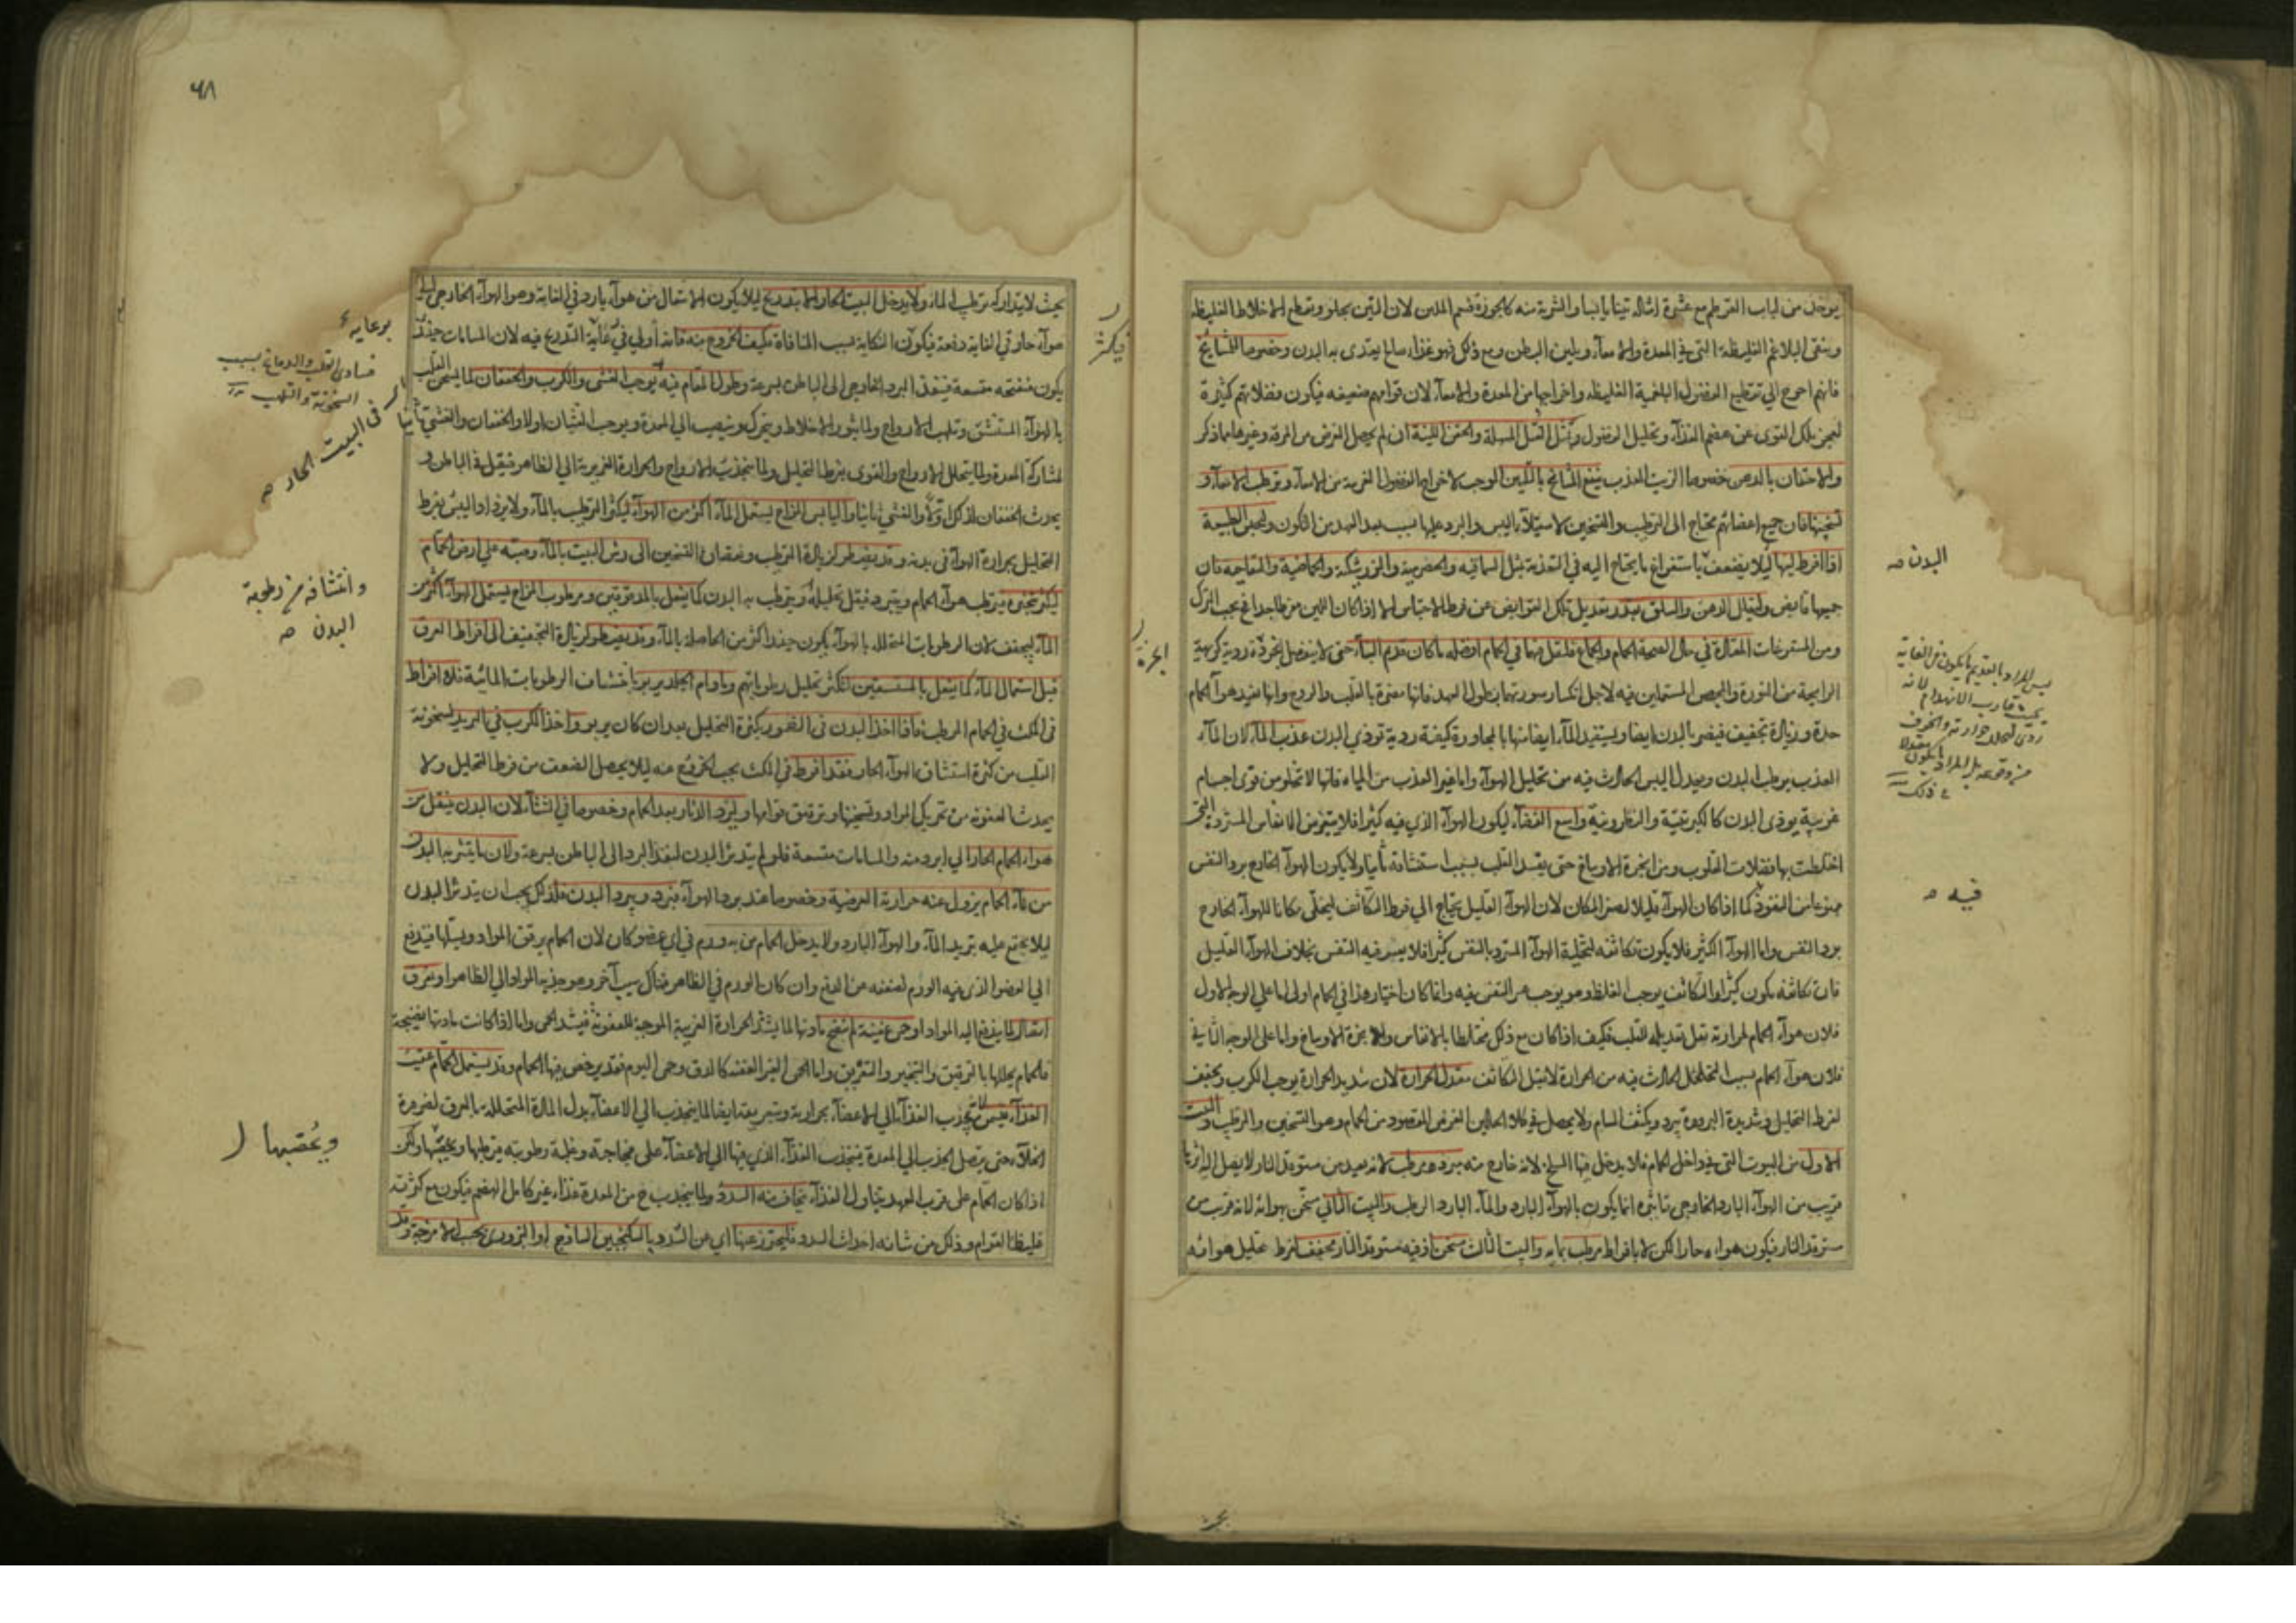 يوخذ من لباب القرطم مع عشرة امثاله تينا يابسا والشربة منه كالجوزة قسم اللبن لان التين يجلو ويقطع الاخلاط الغليظة
وينقى البلاغم الغليظة التى فى المعدة والامعاء ويلين البطن ومع ذلك فهو غذاء صالح يغتذى به البدن وخصوصا للمشايخ
فانهم احوج الى تقطيع الفضول البلغمية الغليظة واخراجها من المعدة والامعاء لان قواهم ضعيفه فيكون فضلاتهم كثيرة
لعجز تلك القوى عن هضم الغذاء وتحليل الفضول والحقن اللينة ان لم يحصل الغرض من المرقة وغيرها مما ذكر
والاحتقان بالدهن خصوصا الزيت العذب ينفع المشايخ بالتليين الموجب لاخراج الفضول القريبة من الامعاء وترطيب الامعاء و
تسخينها فان جميع اعضائهم محتاج الى الترطيب والتسخين لاستيلاء اليبس والبرد عليها بسبب بعد العهد من التكون وتحبس الطبيعة
اذا افرط لينها ليلا يضعف باستفراغ ما يحتاج اليه فى التغذية بمثل السماقيه والحصرمية والزرشكية والحماضية والتفاحيه فان
جميعها قابض
ومن المستفرغات المعتادة فى حال الصحة الحمام والجماع فلنقل فيهما فى الحمام افضله ما كان قديم البناء حتى لا ينفصل
الرايحة من النورة والجص المستعملين فيه لاجل انكسار سورتهما بطول العهد فانها مضرة بالقلب والروح وانها تفيد هواء الحمام
حدة وزيادة تجفيف فيضر بالبدن ايضا ويستفيد الماء ايضا منها بالمجاورة كيفية ردية توذى البدن عذب الماء لان الماء
العذب يرطب البدن ويعدل اليبس الحادث فيه من تحليل الهواء واما غير العذب من المياه فانها لا تخلو من قوى اجسام
غريبة يوذى البدن كالكبريتية والنطرونية واسع الفضاء ليكون الهواء الذى فيه كثيرا فلا يتغير من الانفاس المستردة التى
اختلطت بها فضلات القلوب ومن ابخرة الاوساخ حتى يفسد القلب بسبب استنشاقه ثانيا ولا يكون الهواء الخارج برد النفس
ممنوعا من النفوذ كما اذا كان الهواء قليلا لصغر المكان لان الهواء القليل يحتاج الى فرط التكاثف ليخلى مكانا للهواء الخارج
برد النفس واما الهواء الكثير فلا يكون تكاثفه لتخلية الهواء المسترد بالنفس كثيرا فلا يعسر فيه النفس بخلاف الهواء القليل
فان تكاثفه يكون كثيرا والتكاثف يوجب الغلظ وهو يوجب عسر النفس فيه وانما كان اختيار هذا فى الحمام اولى اما على الوجه الاول
فلان هواء الحمام لحرارته يقل تعديله للقلب فكيف اذا كان مع ذلك مختلطا بالانفاس والابخرة الاوساخ واما على الوجه الثانى
فلان هواء الحمام بسبب التخلخل الحادث فيه من الحرارة لا يقبل التكاثف معتدل الحرارة لان شديد الحرارة يوجب الكرب ويجفف
لفرط التحليل وشديدة البرودة يبرد ويكثف المسام ولا يحصل فى كلا الحالين الغرض المقصود من الحمام وهو التسخين والترطيب والبيت
الاول من البيوت التى فى داخل الحمام فلا يدخل فيها المسلخ لانه خارج منه يبرد ويرطب لانه بعيد من مستوقد النار لا يصل اليه اثرها
قريب من الهواء البارد الخارجى تاثيره انما يكون بالهواء البارد والماء البارد الرطب والبيت الثانى سخن بهوائه لانه قريب من
مستوقد النار فيكون هواءه حارا لكن لا بافراط مرطب بمايه والبيت الثالث مسخن اذ فيه مستوقد النار مجفف لفرط تحليل هوائه
البدن صح
ليس المراد بالقديم ما يكون فى الغاية
بحيث قارب الانهدام لانه
فيه صح
الخزنة
فيكثر
٦٨
بحيث لا يتداركه ترطيب الماء ولا يدخل البيت الحار الا بتدريج ليلا يكون الانتقال من هواء بارد فى الغاية وهو الهواء الخارجى الى
هواء حار فى الغاية دفعة فيكون النكاية بسبب المنافاة وكيف الخروج منه فانه اولى فى رعاية التدريج فيه لان المسامات حينئذ
يكون منفتحه متسعة فينفذ البرد الخارجى الى الباطن بسرعة وطول المقام فيه يوجب الغشى والكرب والخفقان لما يسخن القلب
بالهواء المستنشق ويلهب الارواح ولما يثور الاخلاط ويتحرك وينصب الى المعدة ويوجب الغثيان اولا والخفقان والغشى ثانيا
لمشاركة المعدة ولما يتحلل الارواح والقوى بفرط التحليل ولما ينجذب الارواح والحرارة الغريزية الى الظاهر فيقل فى الباطن و
يحدث الخفقان لذلك اولا والغشى ثانيا واليابس المزاج يستعمل الماء اكثر من الهواء ليكثر الترطيب بالماء ولا يزداد اليبس بفرط
التحليل بحرارة الهواء فى بدنه وقد يضطر لزيادة الترطيب ونقصان التسخين الى رش البيت بالماء وصبه على ارض الحمام
ليكثر تبخره يترطب هواء الحمام ويتبرد فيقل تحليله ويترطب به البدن كما يفعل بالمدقوقين ومرطوب المزاج يستعمل الهواء اكثر من
الماء ليجفف لان الرطوبات المتحللة بالهواء يكون حينئذ اكثر من الحاصله بالماء وقد يضطر لزيادة التجفيف الى افراط العرق
قبل استعمال الماء كما يفعل بالمستسقين لتكثر تحليل رطوباتهم وما دام الجلد يربو بانتشاف الرطوبات المائية فلا افراط
فى المكث فى الحمام المرطب فاذا اخذ البدن فى الضمور لكثرة التحليل بعد ان كان يربو واخذ الكرب فى التزيد لسخونة
القلب من كثرة استنشاق الهواء الحار فقد افرط فى المكث يجب الخروج عنه ليلا يحصل الضعف من فرط التحليل ولا
يحدث العفونة من تحريك المواد وتسخينها وترقيق قوامها وليزد الدثار بعد الحمام وخصوصا فى الشتاء لان البدن ينتقل من
هواء الحمام الحار الى ابرد منه والمسامات متسعة فلو لم يتدثر البدن لنفذ البرد الى الباطن بسرعة ولان ما يتشربه البدن
من ماء الحمام يزول عنه حرارته العرضية وخصوصا عند برد الهواء فيبرد ويبرد البدن فلذلك يجب ان يتدثر البدن
ليلا يجتمع عليه تبريد الماء والهواء البارد ولا يدخل الحمام من به ورم فى اى عضو كان لان الحمام يرقق المواد ويسيلها فيندفع
الى العضو الذى فيه الورم لضعفه عن الدفع وان كان الورم فى الظاهر فهناك سبب آخر وهو جذبه المواد الى الظاهر او تفرق
اتصال لما يندفع اليه المواد او حمى عفنية لم تنضج مادتها لما يشتد الحرارة الغريبة الموجبة للعفونة فيشتد الحمى واما اذا كانت مادتها نضيجة
فالحمام يحللها بالترقيق والتبخير والتعريق واما الحمى الغير العفنة كالدق وحمى اليوم فقد يرخص فيها الحمام وقد يستعمل الحمام عقيب
الغذاء فيسمن بجذب الغذاء الى الاعضاء بحرارته
الخلاء حتى يتصل الجذب الى المعدة فينجذب الغذاء الذى فيها الى الاعضاء على فجاجته وغلبة رطوبته فيرطبها ويخصبها ولكن
اذا كان الحمام على قرب العهد بتناول الغذاء يخاف منه السدد ولما ينجذب ح من المعدة غذاء غير كامل الهضم فيكون مع كثرته
غليظ القوام وذلك من شانه احداث السدد فليحترز عنها اى عن السدد بالسكنجبين الساذج او البزورى بحسب الامزجة وقد
برعاية
فساد القلب والدماغ بسبب
السخونة والتلهب
فى البيت الحار صح
وانتشافه من رطوبة
البدن صح
ويخصبها